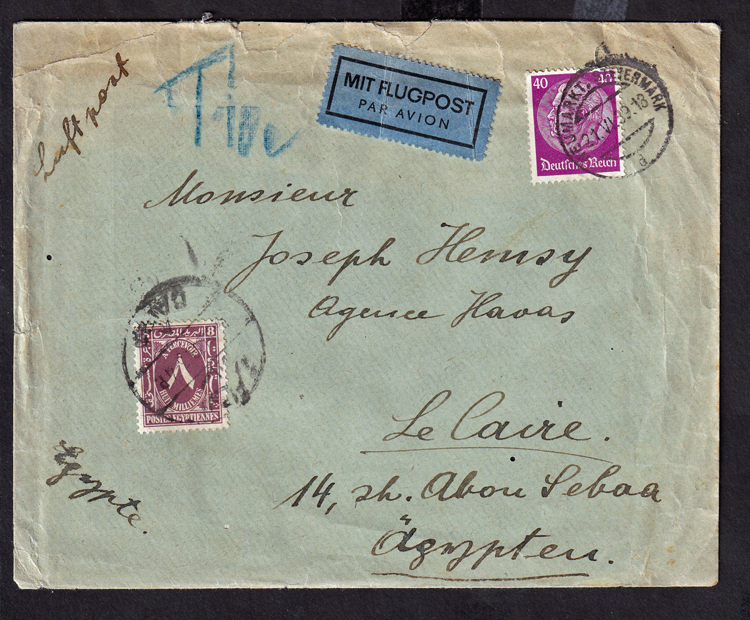 Luftpost
T
MIT FLUGPOST
PAR AVION
40 40
Deutsches Reich
Monsieur
Joseph Hemsy
Agence Havas
8
A PERCEVOIR
٨
HUIT MILLIEMES
POSTES EGYPTIENNES
Le Caire.
14, sh. Abou Sebaa
Ägypten.
Egypte.